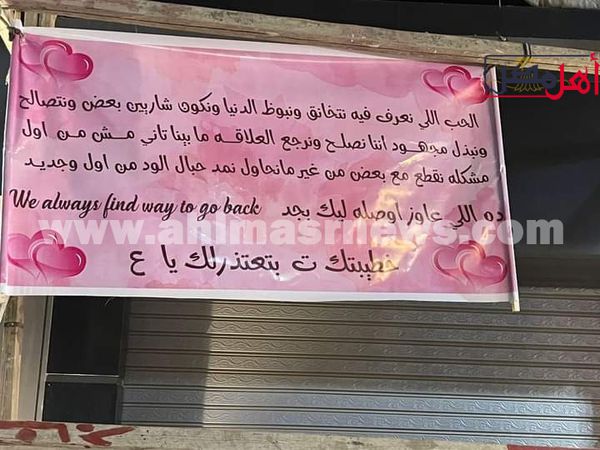 أهل مصر
الحب اللي نعرف فيه نتخانق ونبوظ الدنيا ونكون شاريين بعض ونتصالح
ونبذل مجهود اننا نصلح ونرجع العلاقه ما بينا تاني مش من اول
مشكله نقطع مع بعض من غير مانحاول نمد حبال الود من اول وجديد
ده اللي عاوز اوصله ليك بجد We always find way to go back
www.ahlmasrnews.com
خطيبتك ت بتعتذرلك يا ع